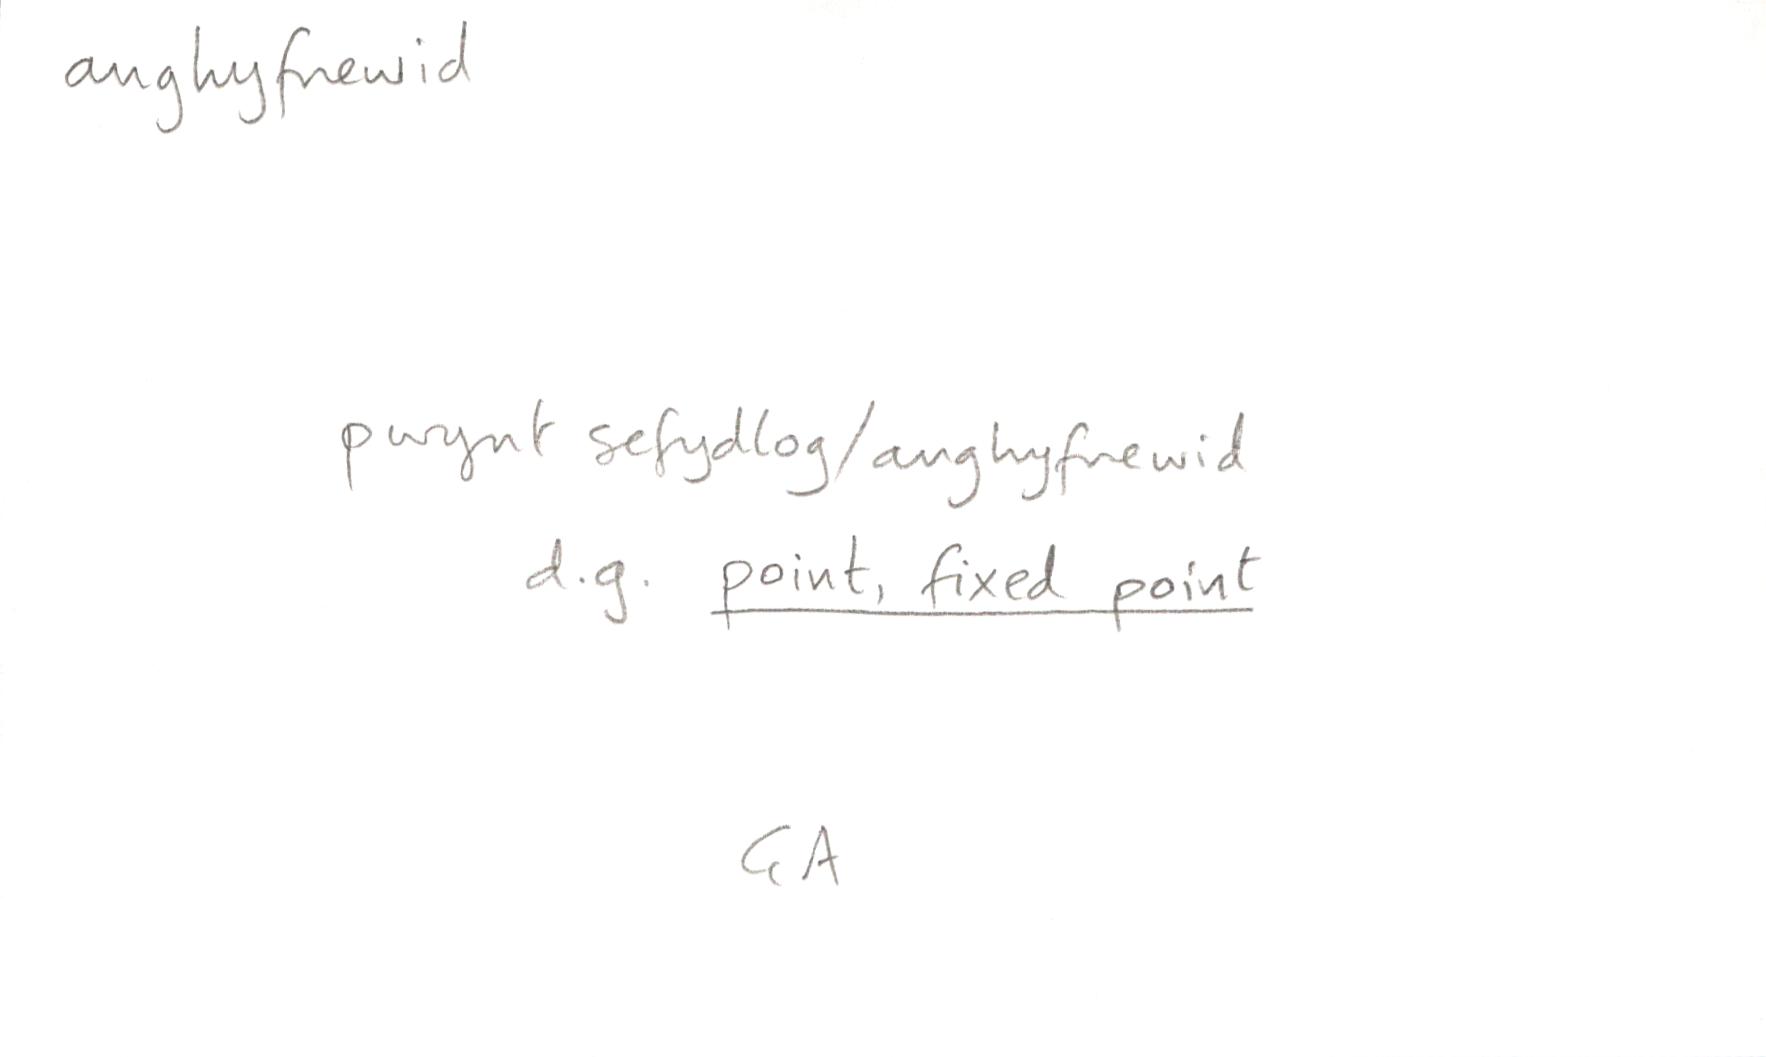 anghyfnewid
pwynt sefydlog/anghyfnewid
d.g. point, fixed point
GA